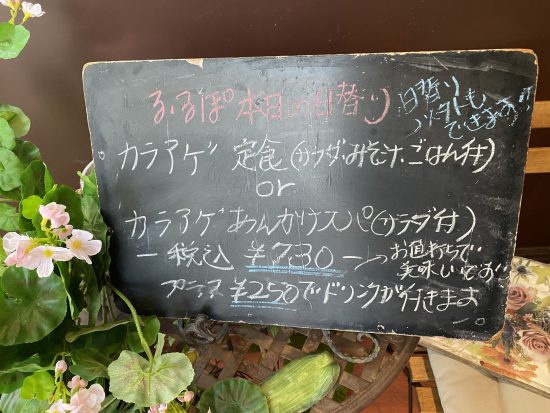 る・るぽ 本日の日替り
日替り
ソフトも
できます!!
カラアゲ 定食(サラダ・みそ汁・ごはん付)
or
カラアゲあんかけスパ(サラダ付)
ー税込 ¥730ー→お直打ちで
美味いです!!
プラス ¥250でドリンクが付きます